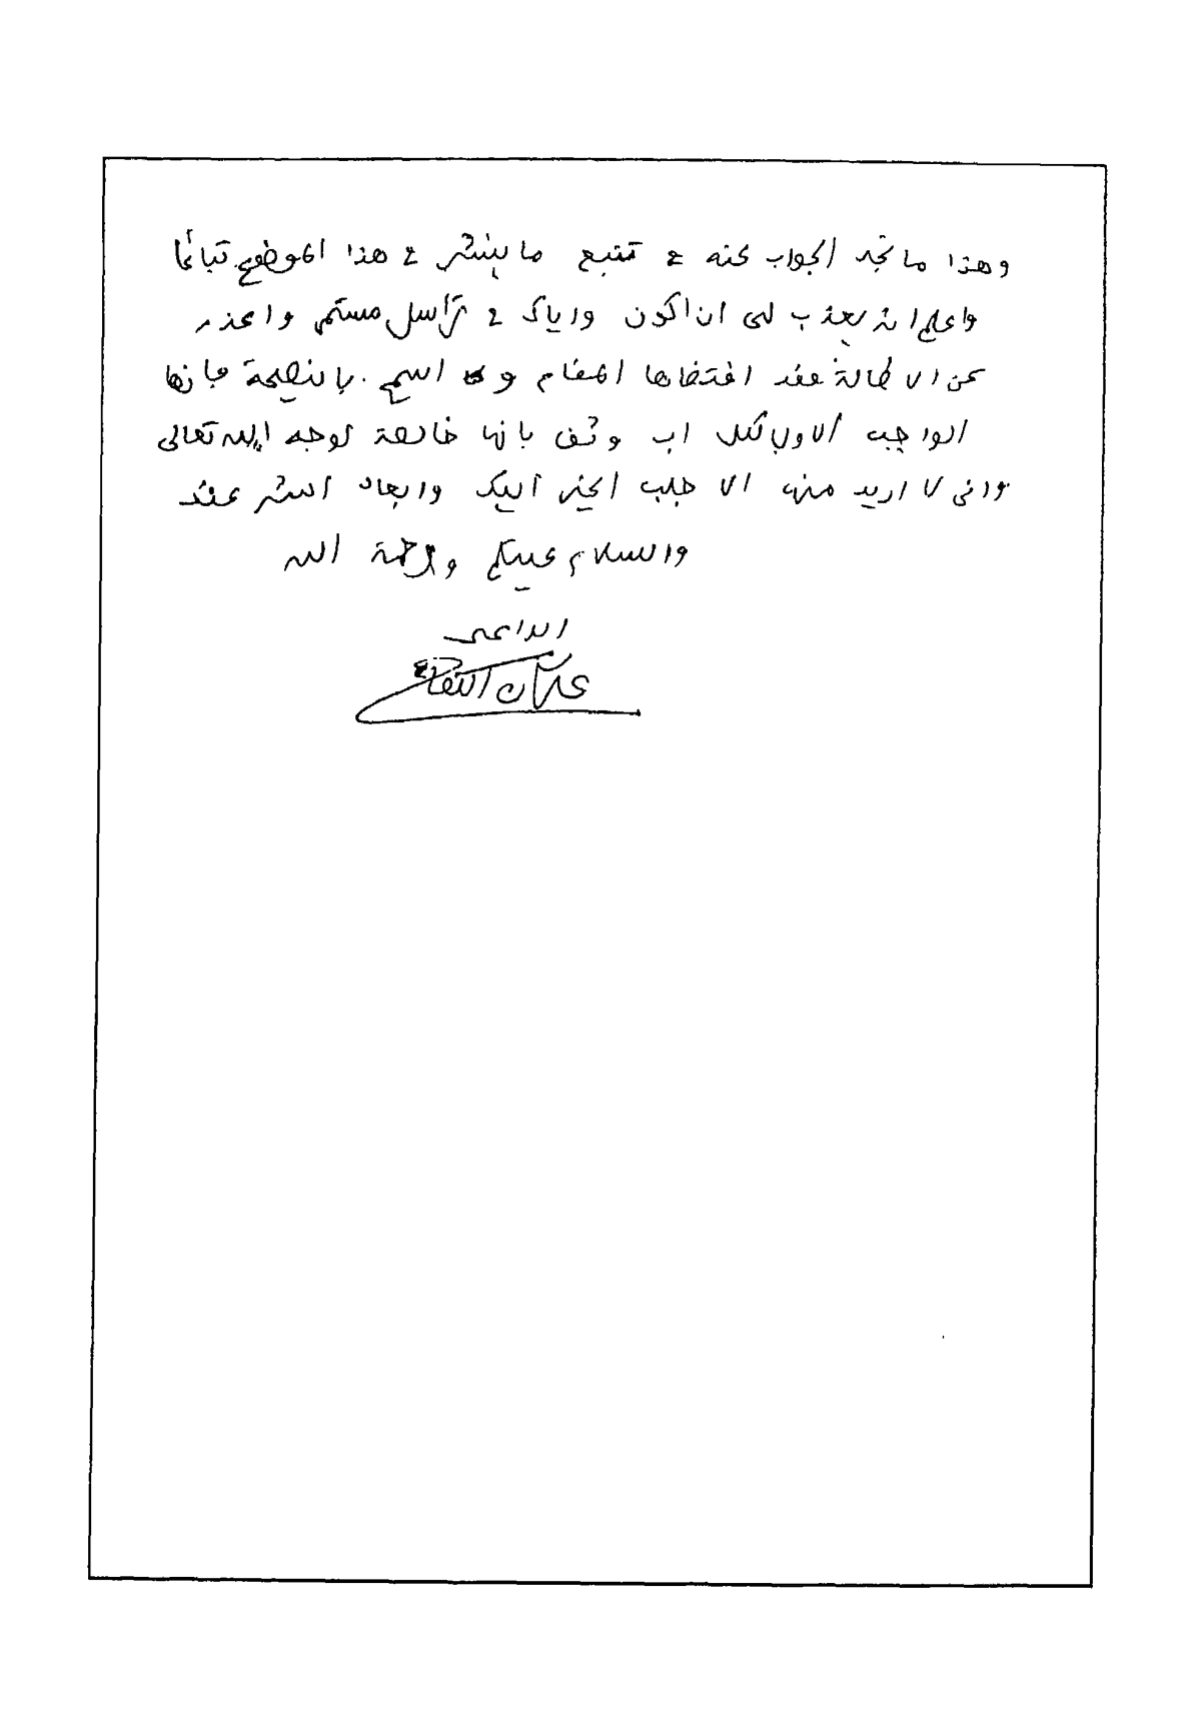 وهذا ما تجد الجواب عنه في تتبع ما ينشر في هذا الموضوع تباعا
واعلم انه يعذب لي ان اكون واياك في تراسل مستمر واعذر
عن الاطالة فقد اقتضاها المقام واسمح بالنصيحة فانها
الواجب الاول لكل اب وثق بانها خالصة لوجه الله تعالى
واني لا اريد منها الا جلب الخير اليك وابعاد الشر عنك
والسلام عليكم ورحمة الله
الداعي
عدنان